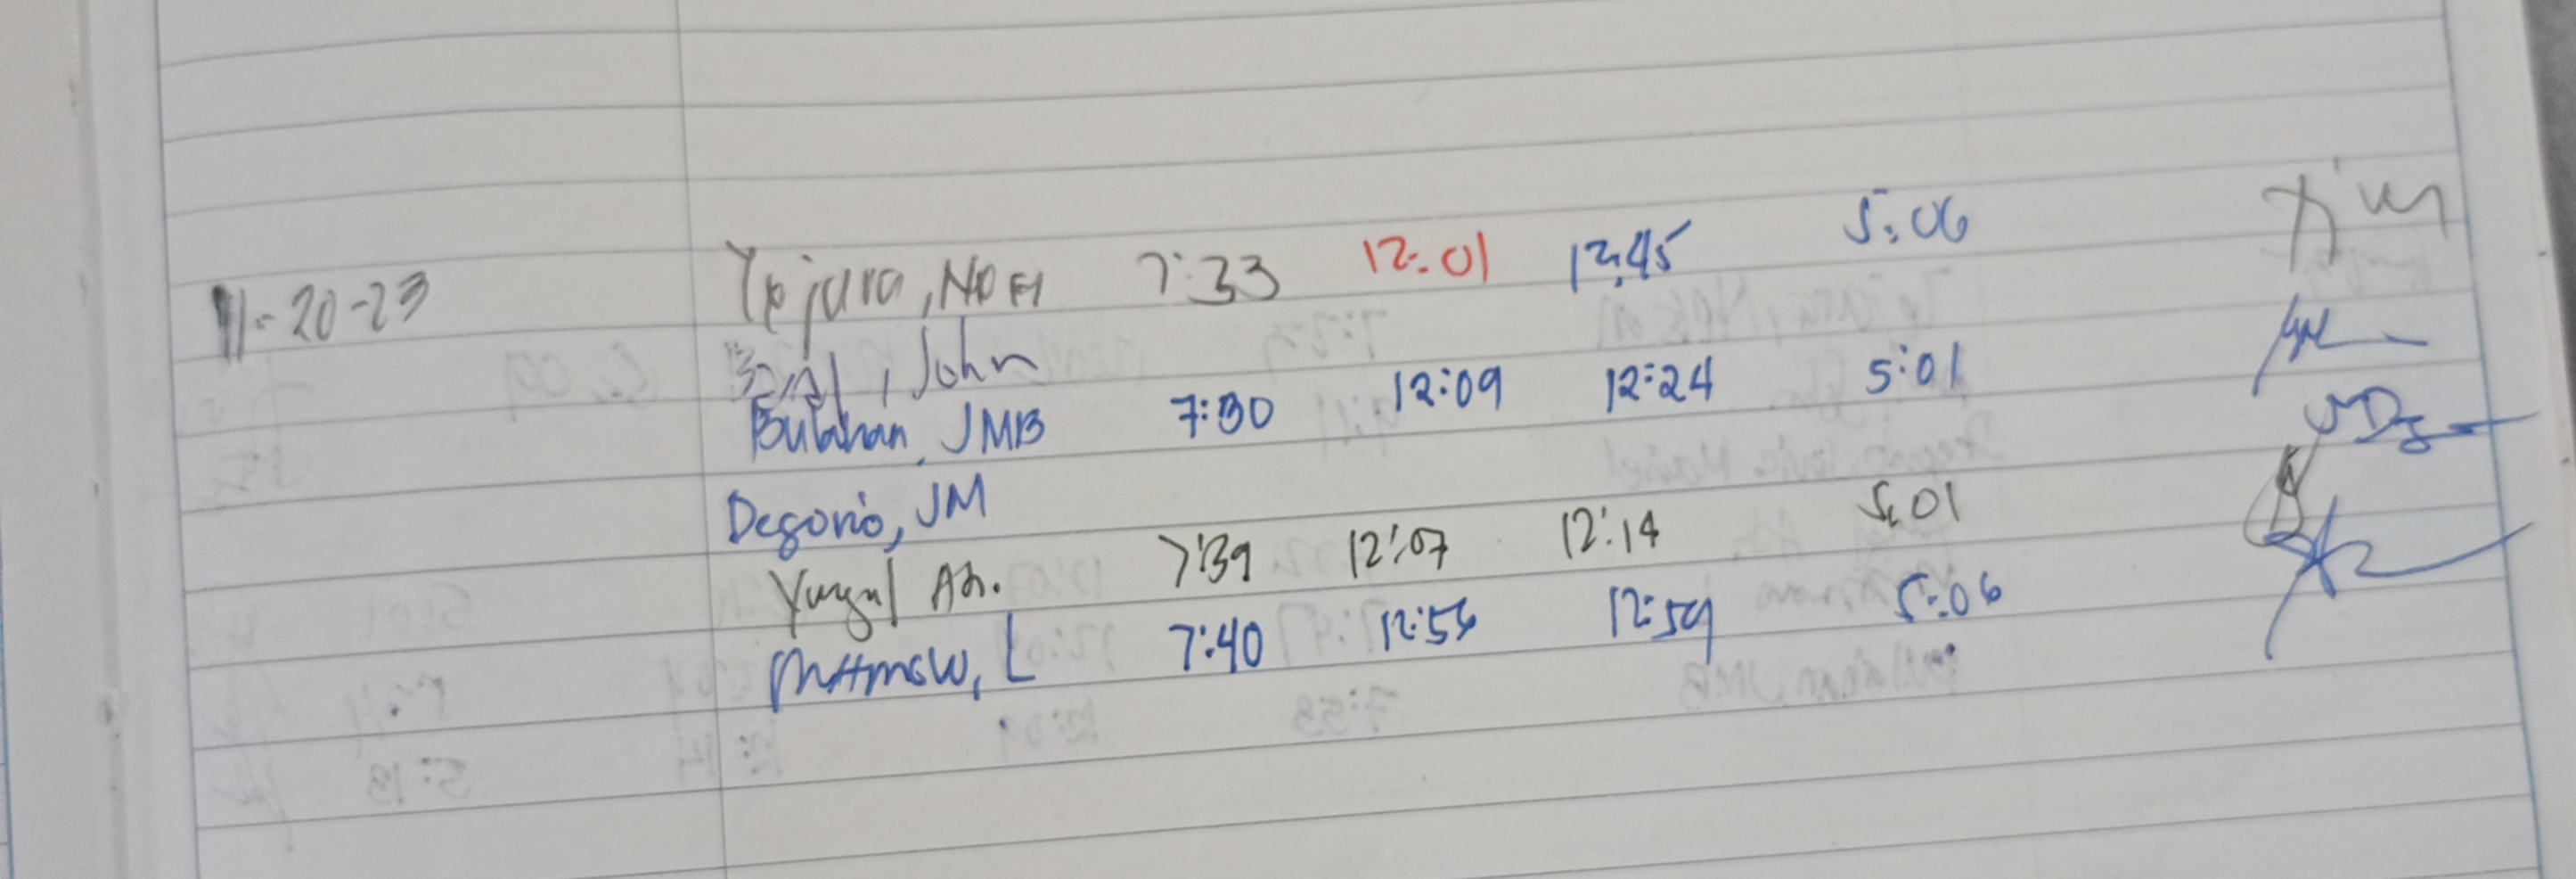 11-20-23 Tejara, Noel 7:33 12:01 12:45 5:06
John
Bulahan, JMB 7:30 12:09 12:24 5:01
Degorio, JM
7:39 12:07 12:14 5:01
L 7:40 12:56 12:59 5:06